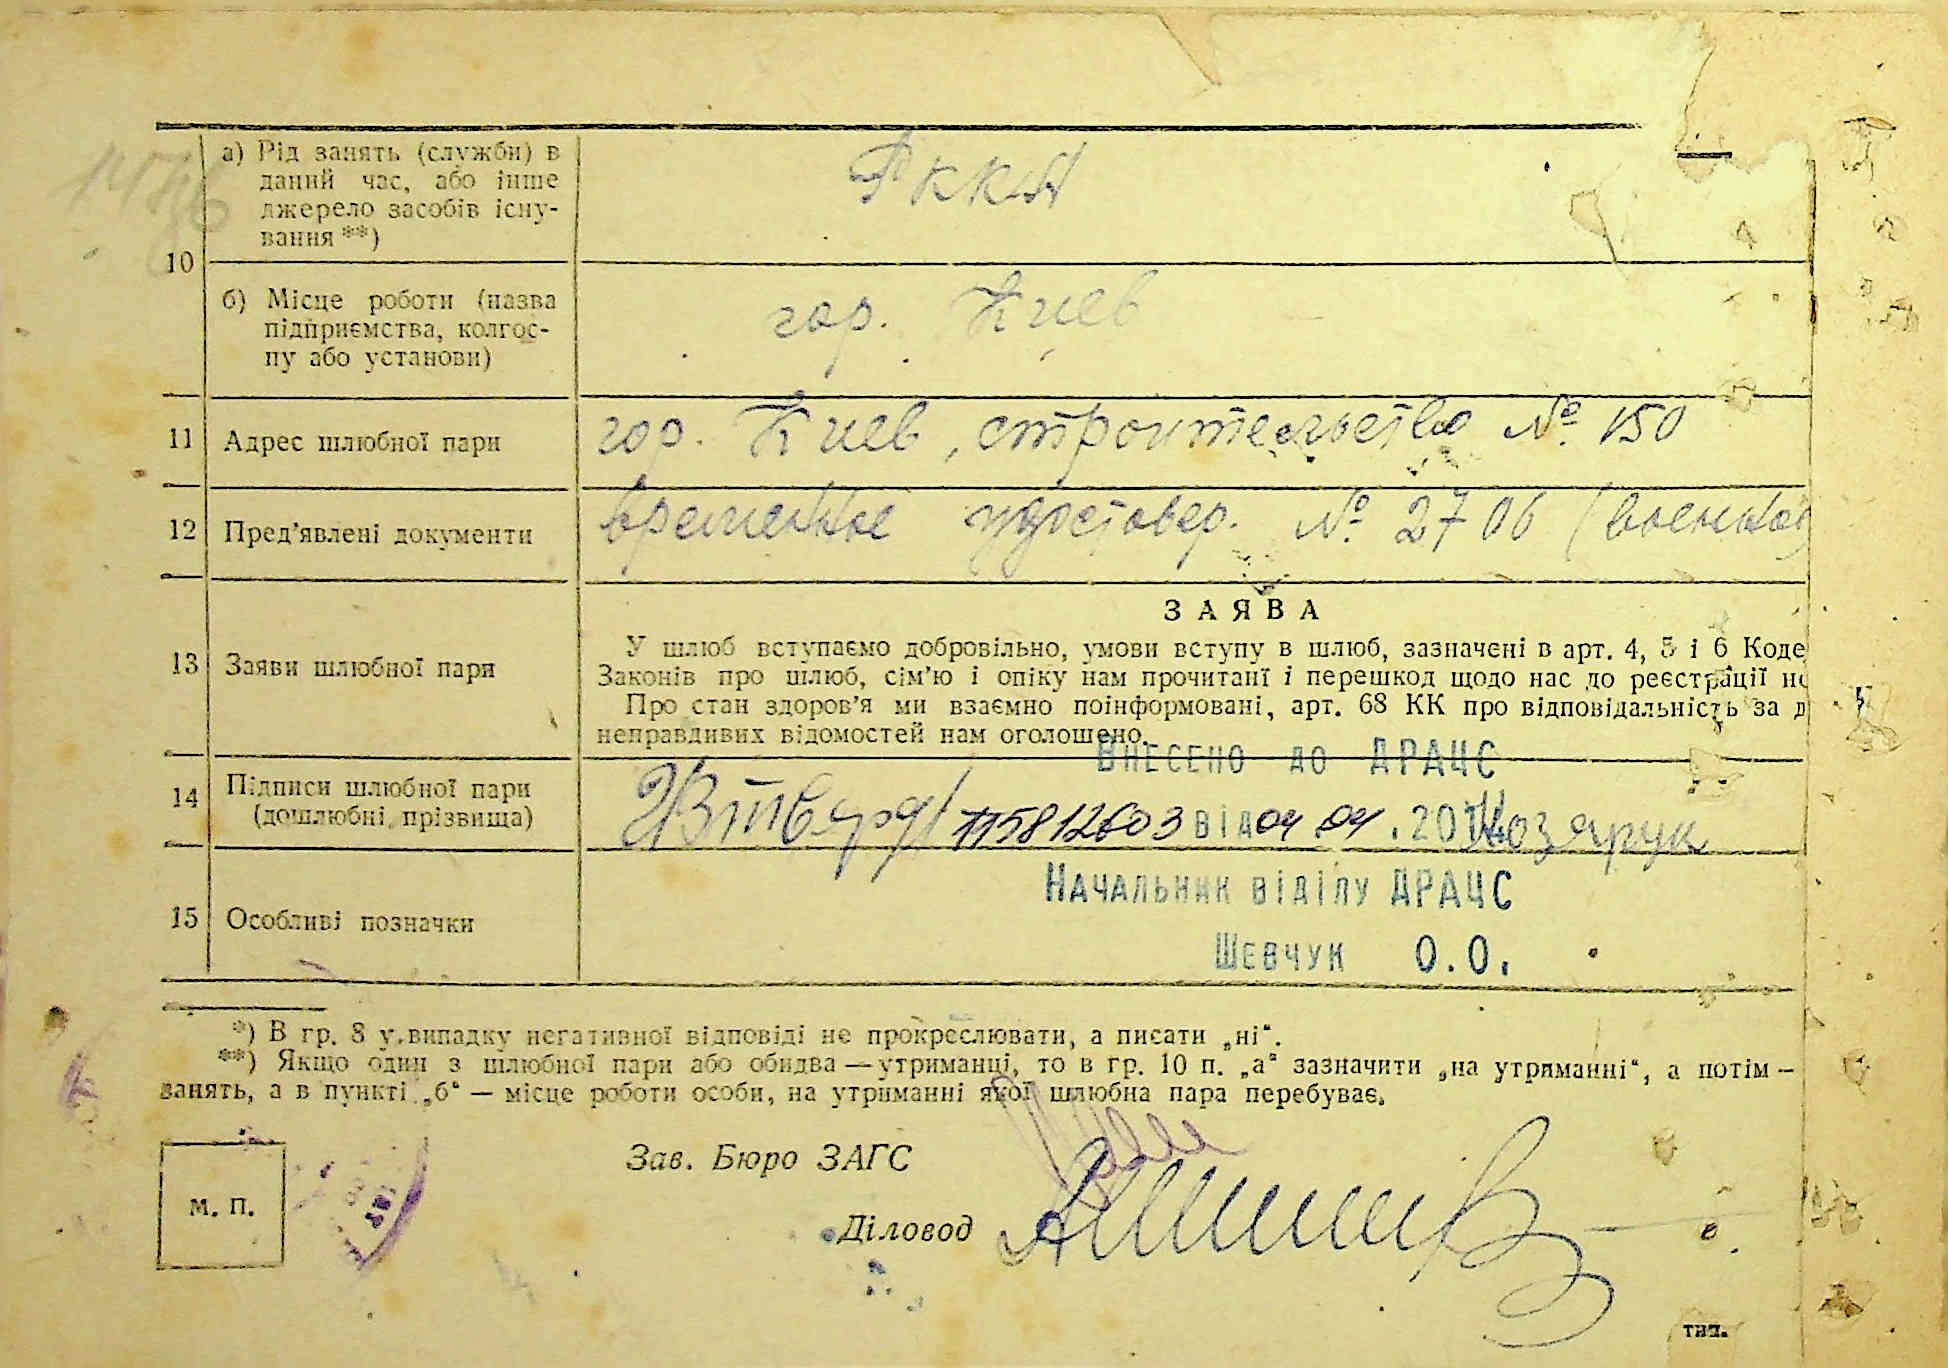 10
а) Рід занять (службн) в
даний час, або інше
джерело засобів існу-
вання **)
РККА
б) Місце роботи (назва
підприємства, колгос-
пу або установи)
гор. Киев
11 Адрес шлюбної пари гор. Киев, строительство № 150
12 Пред’явлені документи временное удостовер. № 2706 (военное)
13 Заяви шлюбної пари
ЗАЯВА
У шлюб вступаємо добровільно, умови вступу в шлюб, зазначені в арт. 4, 5 і 6 Коде
Законів про шлюб, сім’ю і опіку нам прочитані і перешкод щодо нас до реєстрації не
Про стан здоров’я ми взаємно поінформовані, арт. 68 КК про відповідальність за д
неправдивих відомостей нам оголошено.
Внесено до ДРАЦС
14 Підписи шлюбної пари
(дошлюбні прізвища)
115812603 від 04 04 .2014 Козярук
Начальник віділу ДРАЦС
15 Особливі позначки
Шевчук О.О.
*) В гр. 8 у випадку негативної відповіді не прокреслювати, а писати „ні“.
**) Якщо один з шлюбної пари або обидва — утриманці, то в гр. 10 п. „а“ зазначити „на утриманні“, а потім —
занять, а в пункті „б“ — місце роботи особи, на утриманні якої шлюбна пара перебуває.
Зав. Бюро ЗАГС
М. П.
Діловод
тип.